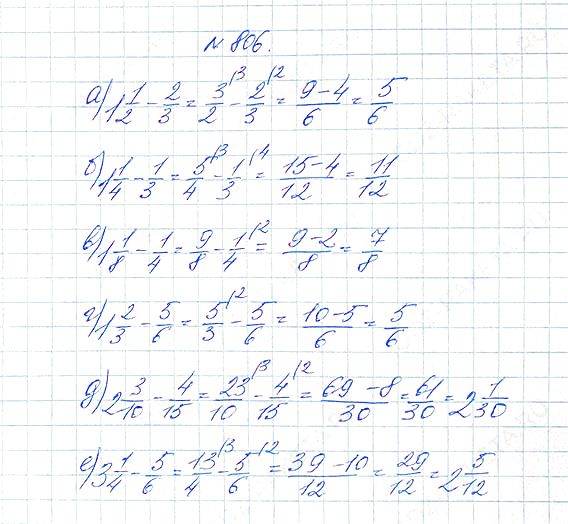 № 806.
а) 1 1/2 - 2/3 = 3/2 |3 - 2/3 |2 = (9-4)/6 = 5/6
б) 1 1/4 - 1/3 = 5/4 |3 - 1/3 |4 = (15-4)/12 = 11/12
в) 1 1/8 - 1/4 = 9/8 - 1/4 |2 = (9-2)/8 = 7/8
г) 1 2/3 - 5/6 = 5/3 |2 - 5/6 = (10-5)/6 = 5/6
д) 2 3/10 - 4/15 = 23/10 |3 - 4/15 |2 = (69-8)/30 = 61/30 = 2 1/30
е) 3 1/4 - 5/6 = 13/4 |3 - 5/6 |2 = (39-10)/12 = 29/12 = 2 5/12